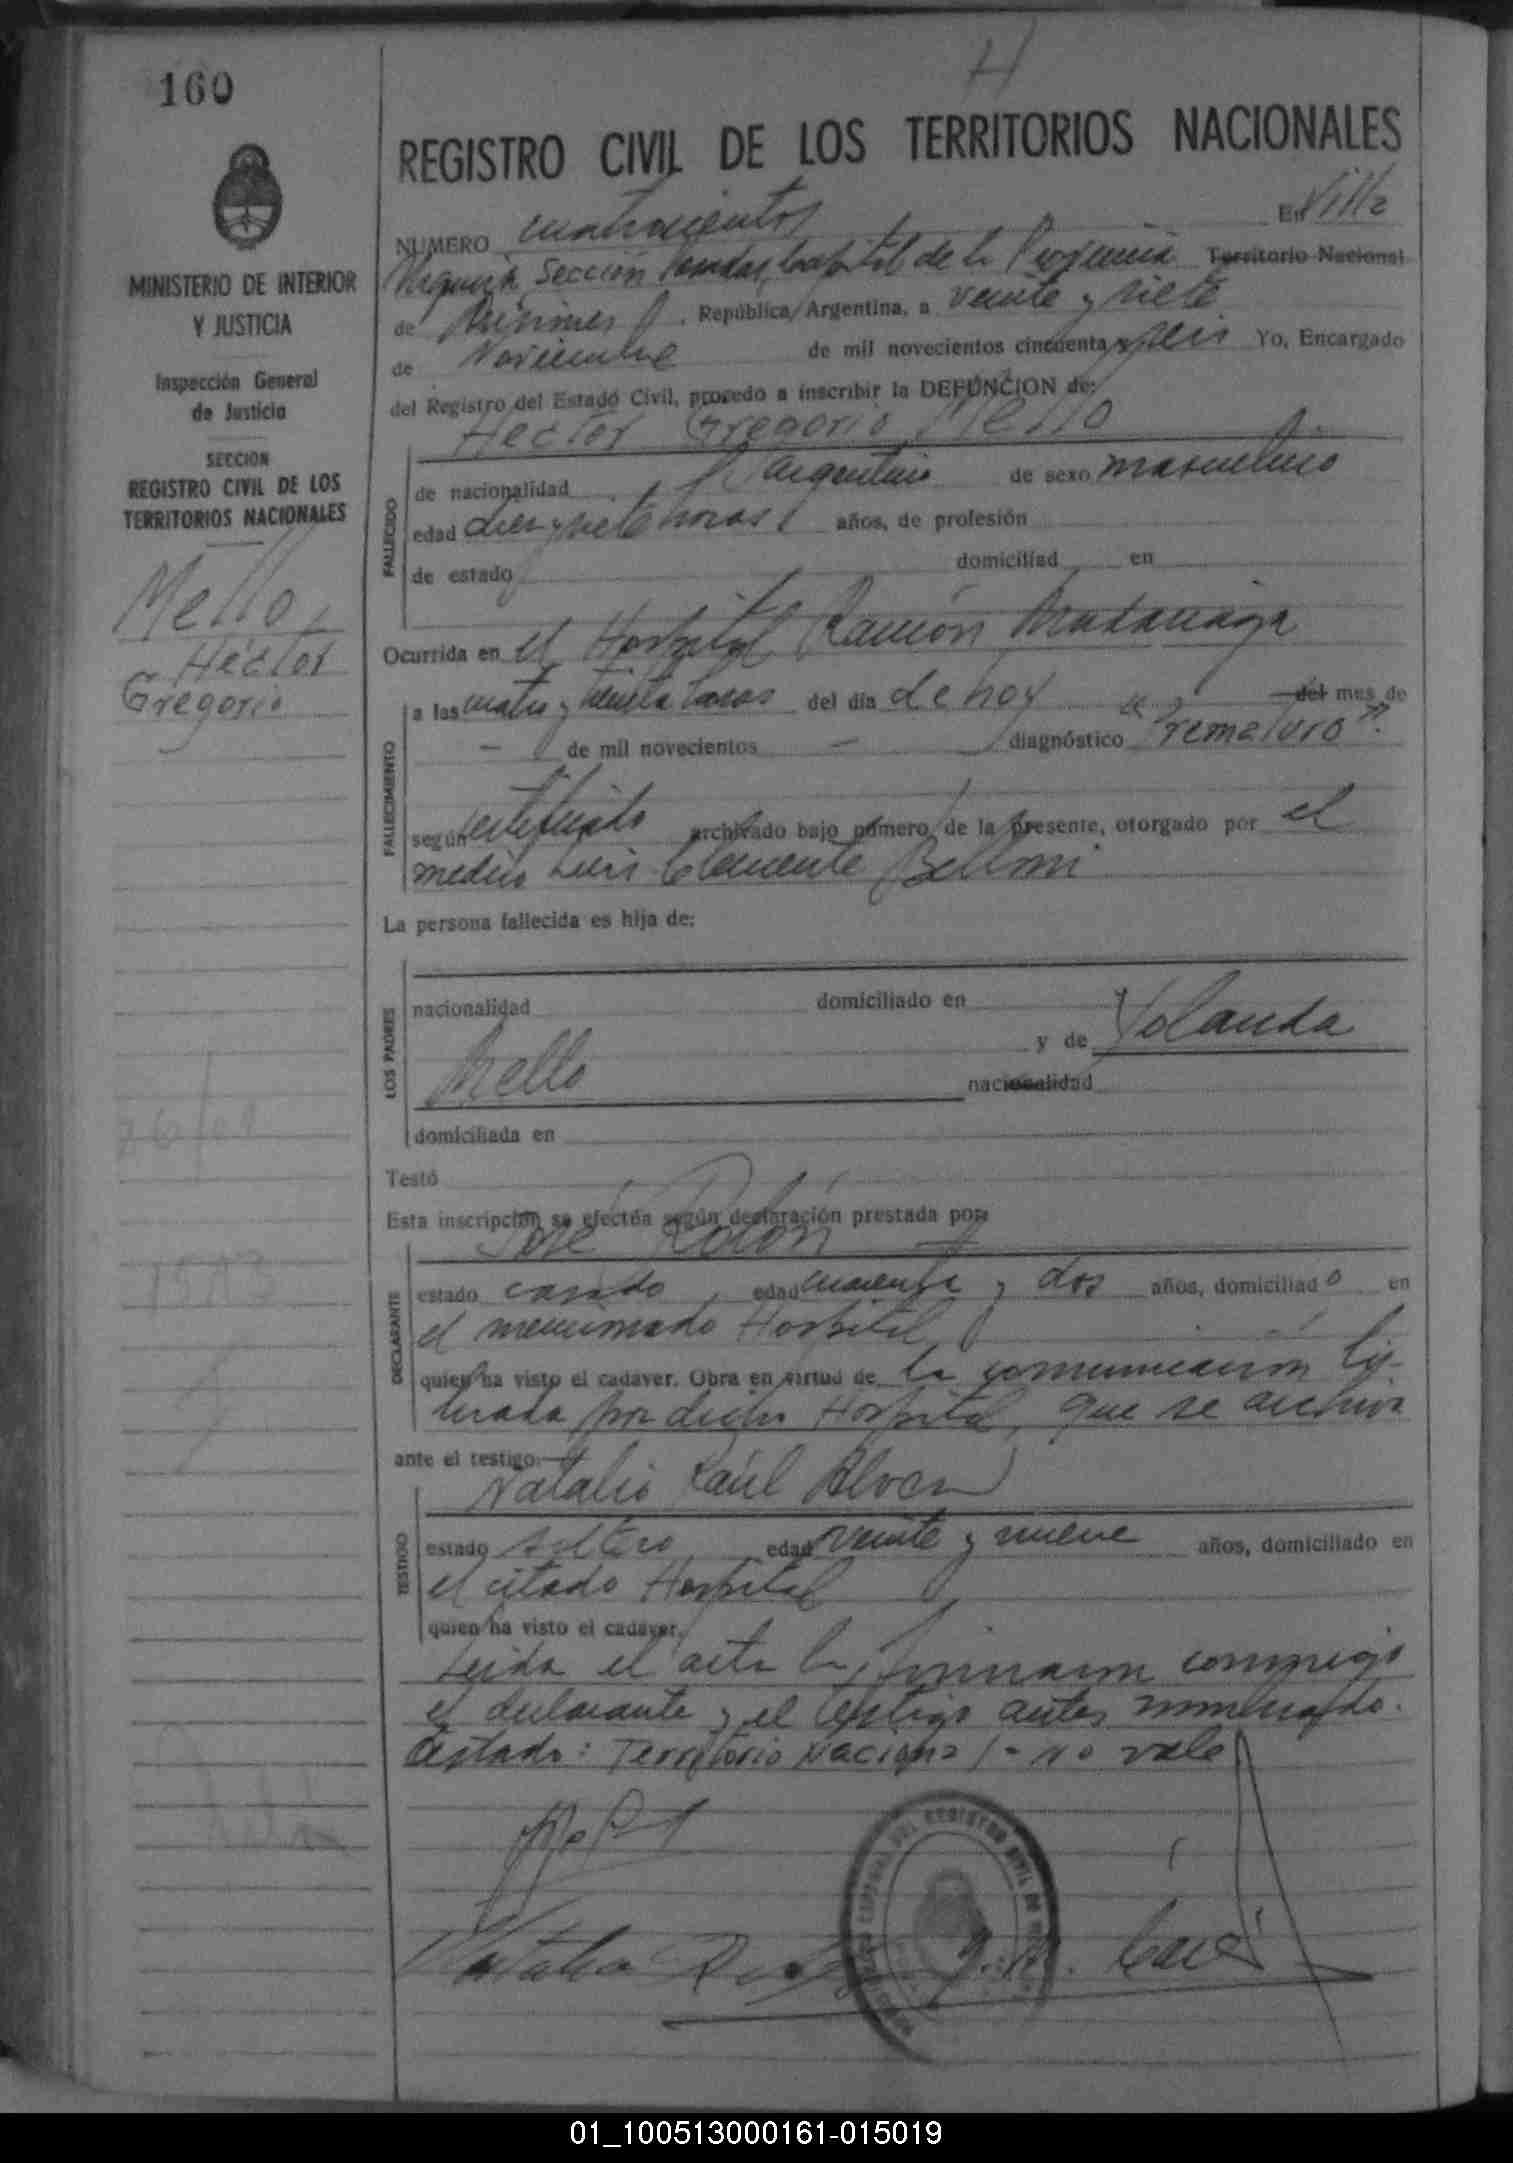 160
H
REGISTRO CIVIL DE LOS TERRITORIOS NACIONALES
MINISTERIO DE INTERIOR
Y JUSTICIA
Inspección General
de Justicia
SECCION
REGISTRO CIVIL DE LOS
TERRITORIOS NACIONALES
Mello,
Héctor
Gregorio
NUMERO cuatrocientos En Villa
Sección Posadas, Capital de la Provincia Territorio Nacional
de Misiones. República Argentina, a veinte y siete
de Noviembre de mil novecientos cincuenta y seis Yo, Encargado
del Registro del Estado Civil, procedo a inscribir la DEFUNCION de:
Hector Gregorio Mello
FALLECIDO
de nacionalidad argentino de sexo masculino
edad diez y siete horas años, de profesión
de estado domiciliad en
Ocurrida en el Hospital Ramón Madariaga
FALLECIMIENTO
a las cuatro y treinta horas del día de hoy del mes de
— de mil novecientos — diagnóstico "Prematuro".
según certificado archivado bajo número de la presente, otorgado por el
médico Luis Clemente Belloni
La persona fallecida es hija de:
LOS PADRES
nacionalidad domiciliado en
y de Yolanda
Mello nacionalidad
domiciliada en
Testó
Esta inscripción se efectúa según declaración prestada por:
José Rolón
DECLARANTE
estado casado, edad cuarenta y dos años, domiciliado en
el mencionado Hospital
quien ha visto el cadáver. Obra en virtud de la comunicación li-
brada por dicho Hospital, que se archiva
ante el testigo:
Natalio Raúl
TESTIGO
estado soltero edad veinte y nueve años, domiciliado en
el citado Hospital
quien ha visto el cadáver.
Leida el acta la firmaron conmigo
el declarante y el testigo antes nombrado.
Testado: Territorio Nacional - no vale
DEL REGISTRO CIVIL DE
01_100513000161-015019